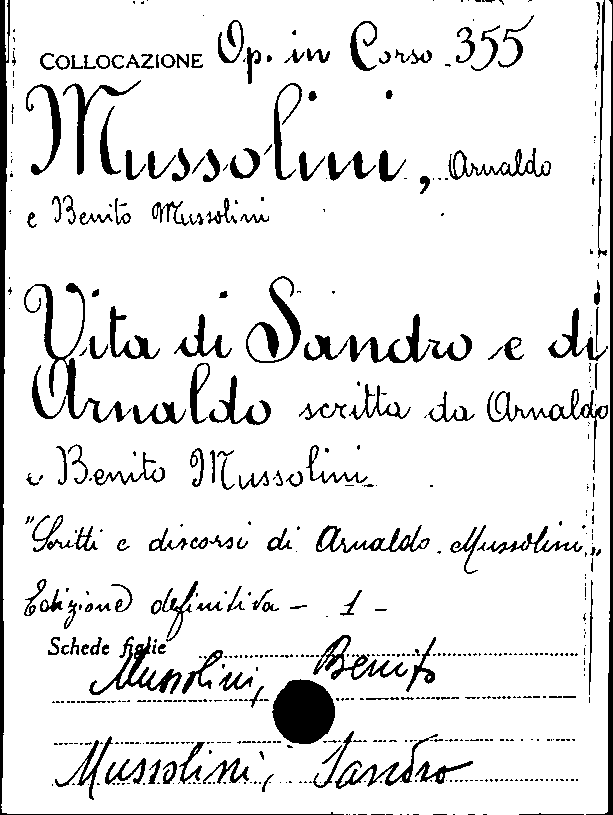 COLLOCAZIONE Op. in Corso 355
Mussolini, Arnaldo
e Benito Mussolini
Vita di Sandro e di
Arnaldo scritta da Arnaldo
e Benito Mussolini
"Scritti e discorsi di Arnaldo Mussolini"
Edizione definitiva - 1 -
Schede figlie
Mussolini, Benito
Mussolini, Sandro